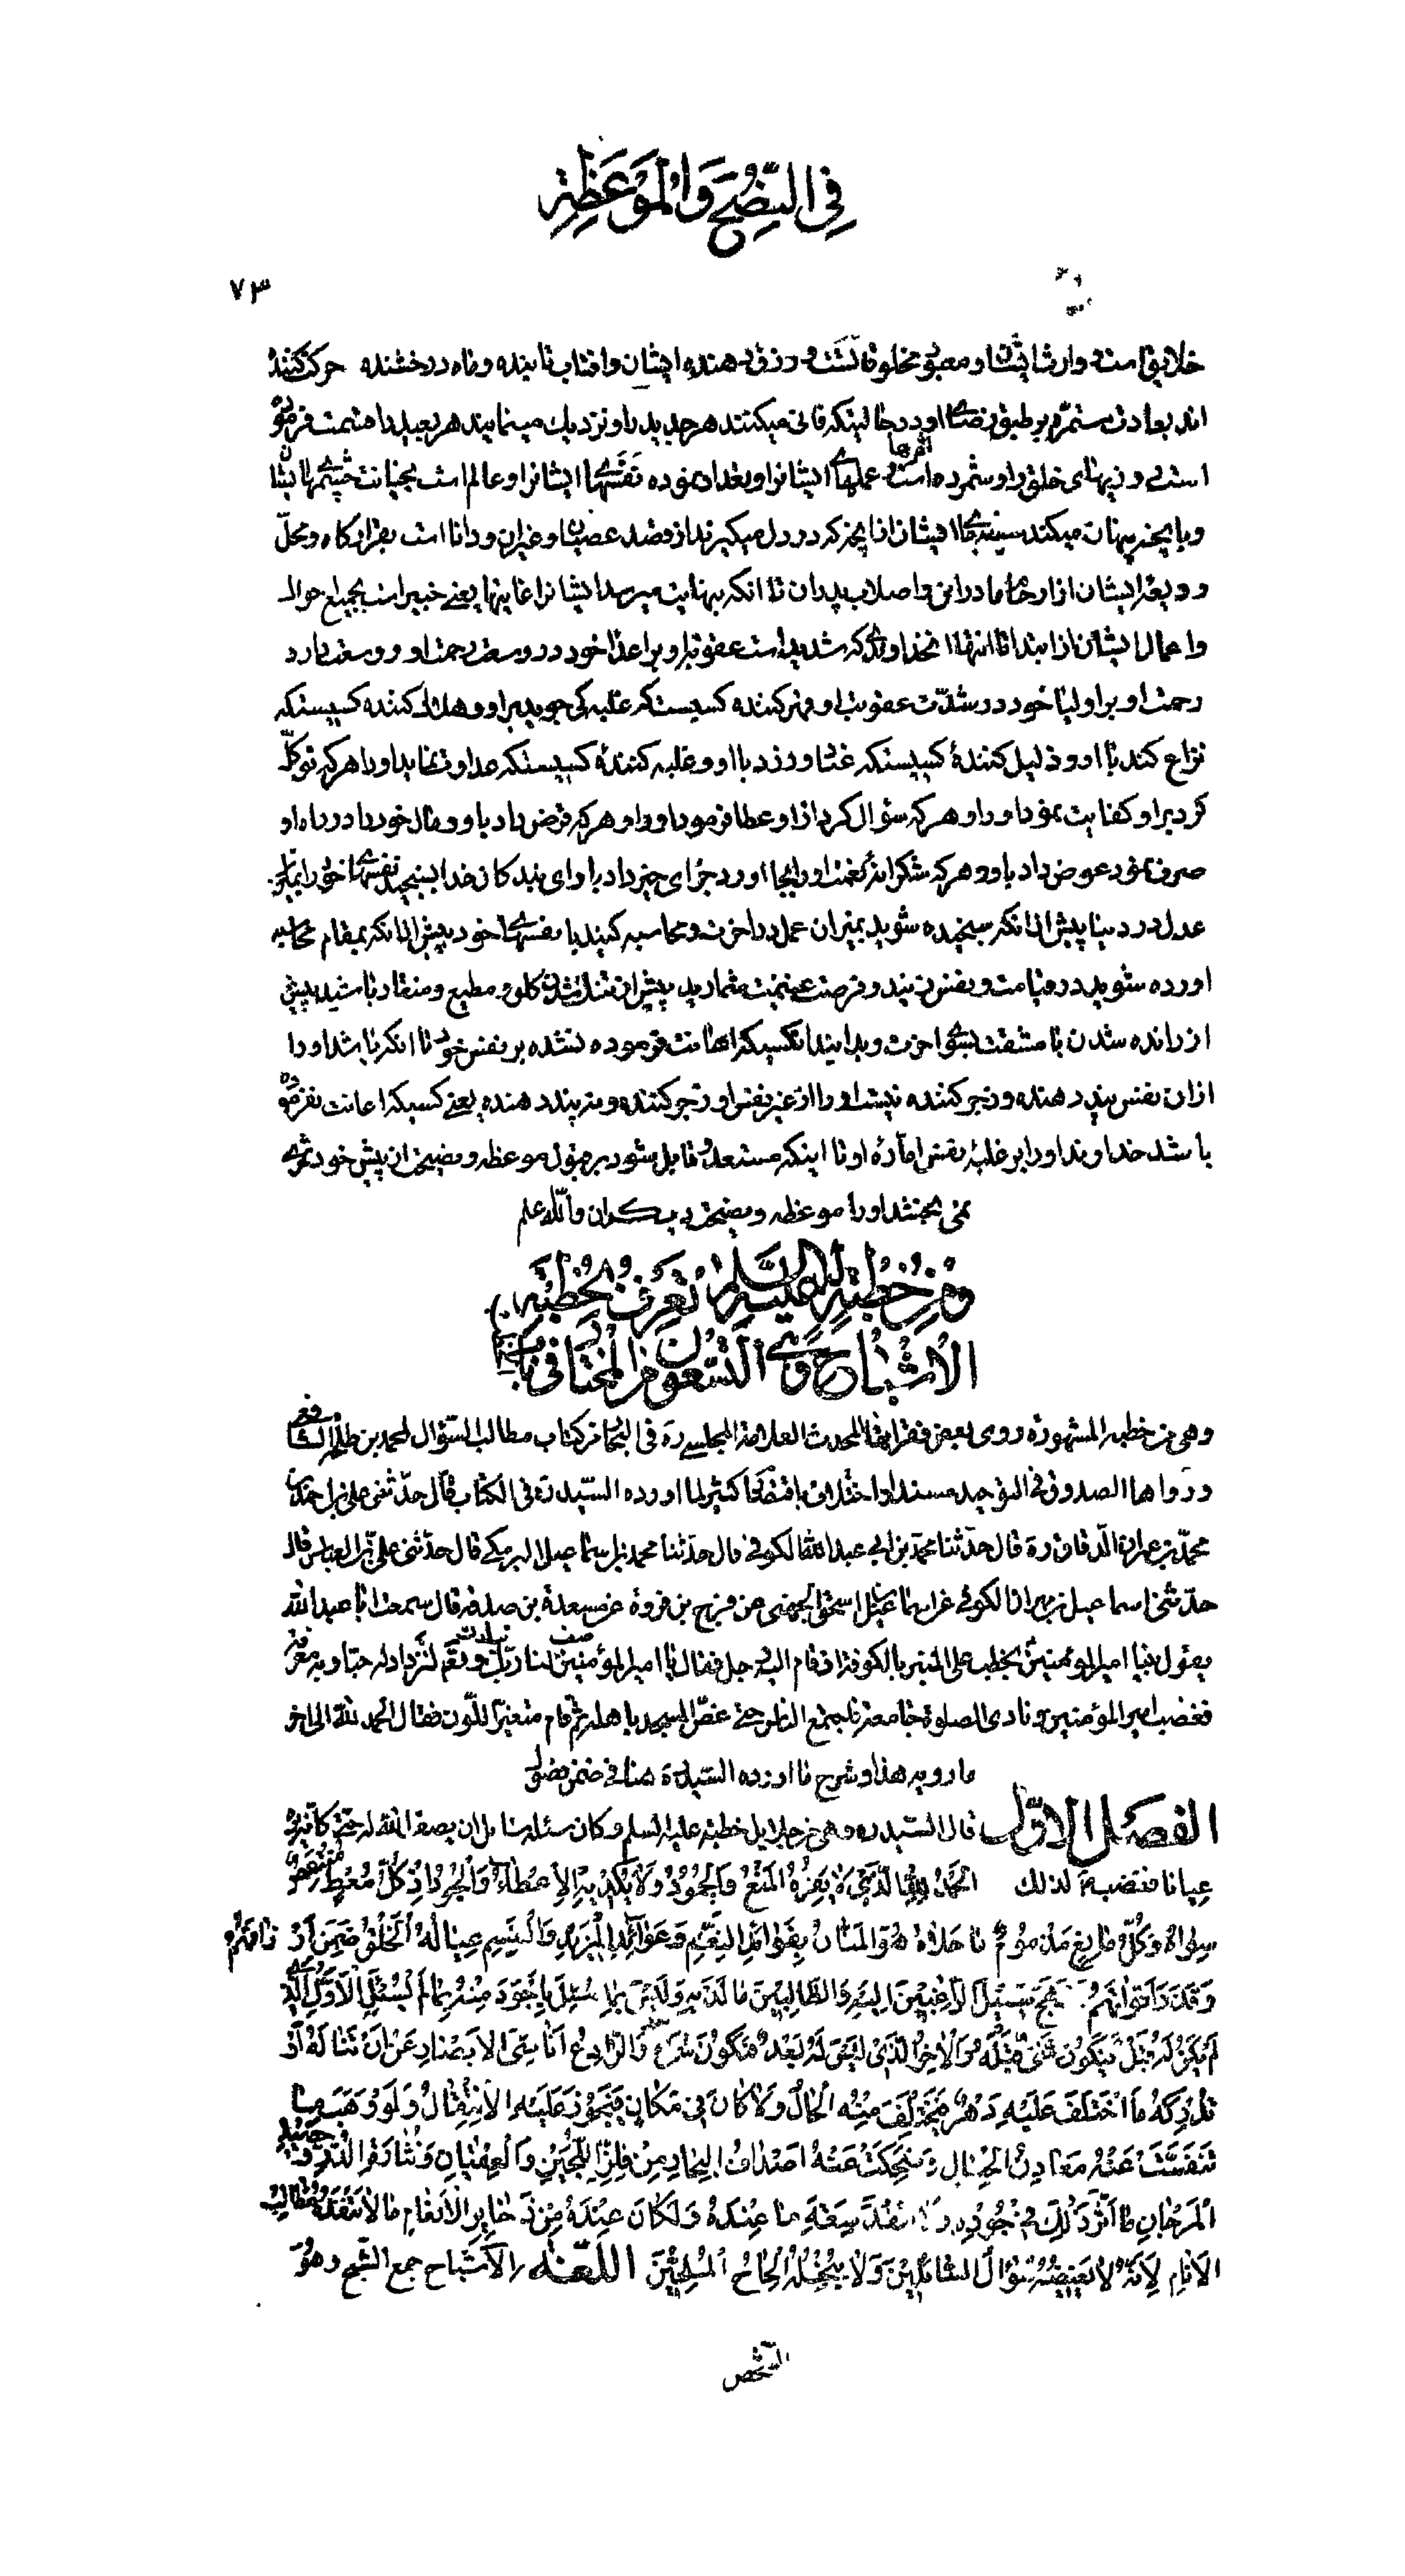 في النصح والموعظة
٧٣
خلايق است و وارث ايشان و معبود مخلوقاتست و رزق دهنده ايشان وافتاب تابنده وماه درخشنده حركت كننده
اند بعادت مستمرّه بر طبق رضاى او در حالتيكه فانى ميكنند هر جديد را و نزديك مينمايند هر بعيد را قسمت فرموده
است روزيهاى خلق را و شمرده است اثرها و عملهاى ايشانرا و تعداد نموده نفسهاى ايشانرا و عالم است بخيانت چشمهاى ايشان
و بانچيز پنهان ميكند سينهاى ايشان از انچيز كه در دل ميگيرند از قصد عصيان و غير ان و دانا است بقرارگاه و محلّ
و وديعهٔ ايشان از ارحام مادران و اصلاب پدران تا انكه بنهايت ميرسد ايشانرا غايتها يعنى خبير است بجميع حوال
و اعمال ايشان از ابتدا تا انتها انخداوندى كه شديد است عقوبت او بر اعداء خود در وسعت رحمت او و وسعت دارد
رحمت او بر اولياء خود در شدّت عقوبت او و قهر كننده كسيست كه غلبه گى جويد بر او و هلاك كننده كسيستكه
نزاع كند با او و ذليل كنندهٔ كسيستكه عناد ورزد با او و غلبه كنندهٔ كسيستكه عداوت نمايد او را هر كه توكلّ
كرد بر او كفايت نمود او را و هر كه سؤال كرد از او عطا فرمود او را و هر كه قرض داد باو و مال خود را در راه او
صرف نمود عوض داد باو و هر كه شكرانهٔ نعمت او را بجا اورد جزاى خير داد باو اى بندگان خدا بسنجيد نفسهاى خود را بميزان
عدل در دنيا پيش از انكه سنجيده شويد بميزان عمل در اخرت و محاسبه كنيد با نفسهاى خود پيش از انكه بمقام محاسبه
اورده شويد در قيامت و نفس بزنيد و فرصت غنيمت شماريد پيش از تنك شدن گلو و مطيع و منقاد باشيد پيش
از رانده شدن با مشقت بسوى اخرت و بدانيد انكسيكه اعانت فرموده نشده بر نفس خود تا انكه باشد او را
از ان نفس پند دهنده و زجر كننده نيست او را از غير نفس او زجر كننده و نه پند دهنده يعنى كسيكه اعانت نفرموده
باشد خداوند او را بر غلبهٔ نفس امّارهٔ او تا اينكه مستعد و قابل شود بر قبول موعظه و نصيحت ان پيش خود ثمرى
نمى بخشد او را موعظه و نصيحت ديگران والله اعلم
ومن خطبة له عليه السلام تعرف بخطبة
الاشباح وهي التسعون من المختار في باب الخطب
وهي من خطبه المشهورة روى بعض فقراتها المحدث العلامة المجلسي ره في البحار من كتاب مطالب السّؤال لمحمد بن طلحة الشافعي
ورواها الصدوق في التوحيد مسندا واختلاف باقتضاء كثير لما اورده السّيد ره في الكتاب قال حدّثني علي بن احمد بن
محمّد بن عمران الدّقاق ره قال حدّثنا محمّد بن ابي عبد الله الكوفي قال حدّثنا محمد بن اسماعيل البرمكي قال حدّثني علي بن العباس قال
حدّثني اسماعيل بن مهران الكوفي عن اسماعيل بن اسحق الجهني عن فرج بن فروة عن مسعدة بن صدقة قال سمعت ابا عبد الله
يقول بينا امير المؤمنين يخطب على المنبر بالكوفة اذ قام اليه رجل فقال يا امير المؤمنين صف لنا ربّك تبارك وتعالى لنزداد له حبّا وبه معرفة
فغضب امير المؤمنين ونادى الصلوة جامعة فاجتمع الناس حتى غصّ المسجد باهله ثم قام متغيّر اللّون فقال الحمد لله الى اخر
ما رويه هذا وشرح ما اورده السّيد ره هنا في ضمن فصول
الفصل الاوّل قال السّيد ره وهي من جلايل خطبه عليه السلم وكان سئله سائل ان يصف الله له حتى كانّه يراه
عيانا فغضب لذلك الحمد لله الّذي لا يفره المنع والجمود ولا يكديه الاعطاء والجود اذ كلّ معط منتقص
سواه وكلّ مانع مذموم ما خلاه هو المنّان بفوائد النّعم وعوائد المزيد والقسم عياله الخلق ضمن ارزاقهم
وقدّر اقواتهم ونهج سبيل الرّاغبين اليه والطّالبين ما لديه وليس بما سئل باجود منه بما لم يسئل الاوّل الّذي
لم يكن له قبل فيكون شيء قبله والاخر الّذي ليس له بعد فيكون شيء بعده والرّادع اناسيّ الابصار عن ان تناله او
تدركه ما اختلف عليه دهر فيختلف منه الحال ولا كان في مكان فيجوز عليه الانتقال ولو وهب ما
تنفّست عنه معادن الجبال وضحكت عنه اصداف البحار من فلزّ اللّجين والعقيان ونثارة الدّرّ وحصيد
المرجان ما اثّر ذلك في جوده ولا انفد سعة ما عنده ولكان عنده من ذخاير الانعام ما لا تنفده مطالب
الانام لانّه الجواد الّذي لا يغيضه سؤال السّائلين ولا يبخله الحاح الملحّين اللّغة الاشباح جمع الشّبح وهو
الشخص